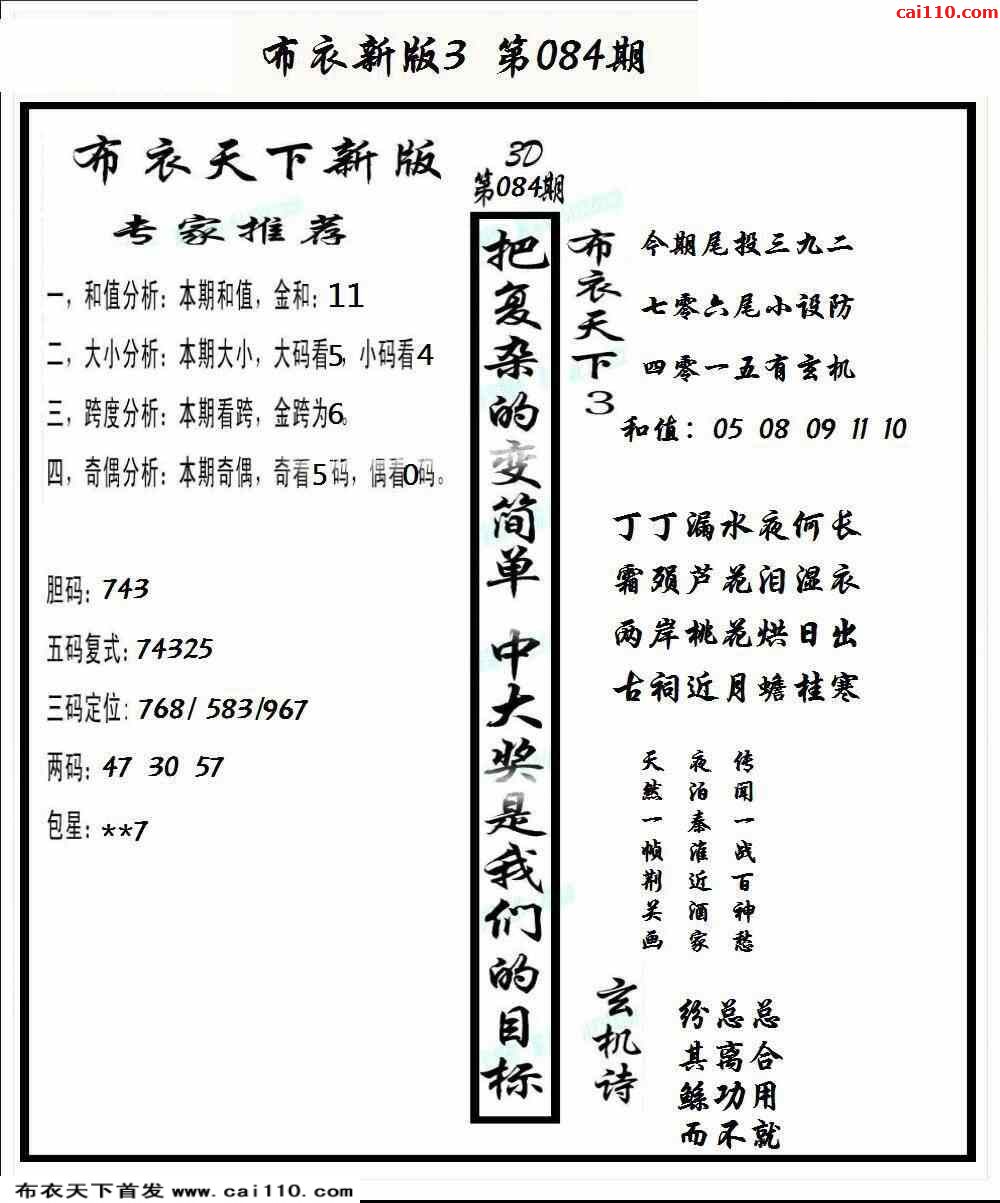 cai110.com
布衣新版3 第084期
布衣天下新版
专家推荐
一，和值分析：本期和值，金和：11
二，大小分析：本期大小，大码看5，小码看4
三，跨度分析：本期看跨，金跨为6。
四，奇偶分析：本期奇偶，奇看5码，偶看0码。
胆码：743
五码复式：74325
三码定位：768/ 583/967
两码：47 30 57
包星：**7
3D
第084期
把复杂的变简单 中大奖是我们的目标
布衣天下3
今期尾投三九二
七零六尾小设防
四零一五有玄机
和值： 05 08 09 11 10
丁丁漏水夜何长
霜殒芦花泪湿衣
两岸桃花烘日出
古祠近月蟾桂寒
传闻一战百神愁
夜泊秦淮近酒家
天然一帧荆关画
玄机诗
纷总总
其离合
鲧功用
而不就
布衣天下首发 www.cai110.com